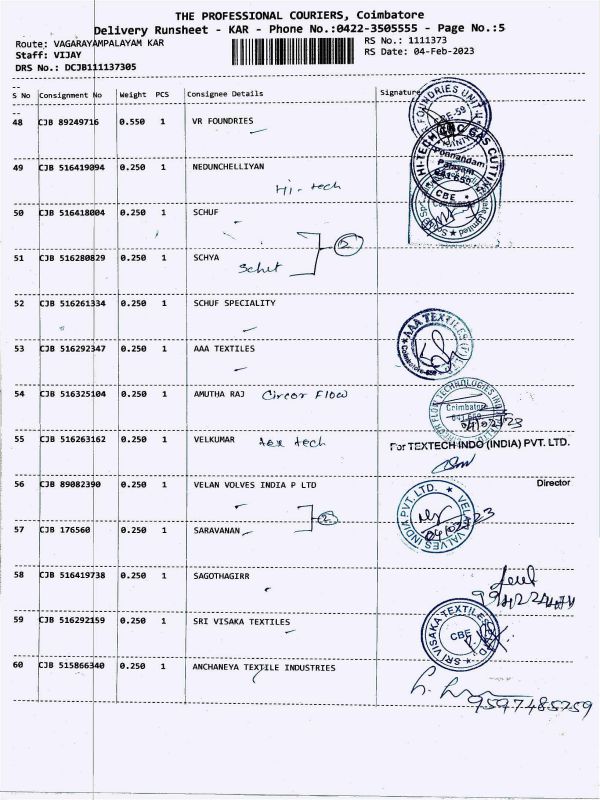 THE PROFESSIONAL COURIERS, Coimbatore
Delivery Runsheet - KAR - Phone No.:0422-3505555 - Page No.:5
Route: VAGARAYAMPALAYAM KAR RS No.: 1111373
Staff: VIJAY RS Date: 04-Feb-2023
DRS No.: DCJB111137305
S No Consignment No Weight PCS Consignee Details Signature
48 CJB 89249716 0.550 1 VR FOUNDRIES
FOUNDRIES UNIT
CBE-59
49 CJB 516419094 0.250 1 NEDUNCHELLIYAN
Hi-tech
HI-TECH CNC GAS CUTTING
Poonandam
Palayam
641 659
CBE
50 CJB 516418004 0.250 1 SCHUF
51 CJB 516280829 0.250 1 SCHYA
2
52 CJB 516261334 0.250 1 SCHUF SPECIALITY
53 CJB 516292347 0.250 1 AAA TEXTILES
AAA TEXTILES
54 CJB 516325104 0.250 1 AMUTHA RAJ Circor Flow
CIRCOR FLOW TECHNOLOGIES
Coimbatore
641 659
04/02/23
55 CJB 516263162 0.250 1 VELKUMAR tex tech
For TEXTECH INDO (INDIA) PVT. LTD.
Director
56 CJB 89082390 0.250 1 VELAN VOLVES INDIA P LTD
2
VELAN VALVES INDIA PVT. LTD.
57 CJB 176560 0.250 1 SARAVANAN
58 CJB 516419738 0.250 1 SAGOTHAGIRR
59 CJB 516292159 0.250 1 SRI VISAKA TEXTILES
SRI VISAKA TEXTILES
CBE
60 CJB 515866340 0.250 1 ANCHANEYA TEXTILE INDUSTRIES
9597485259